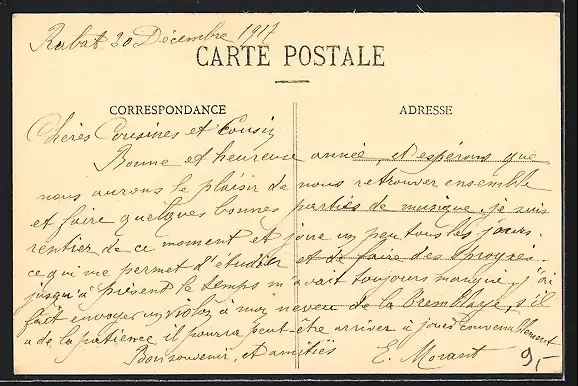 Rabat 30 Décembre 1917
CARTE POSTALE
CORRESPONDANCE
ADRESSE
Chères Cousines et Cousin
Bonne et heureuse année, et esperons que
nous aurons le plaisir de nous retrouver ensemble
et faire quelques bonnes parties de musique. je suis
rentier de ce moment et joue un peu tous les jours.
ce qui me permet d'étudier et de faire des progrès.
jusqu'à présent le temps m'avait toujours manqué, j'ai
fait envoyer un violon à mon neveu de la s'il
a de la patience il pourra peut-être arriver à jouer convenablement
Bon souvenir, et amitiés E. Morant
9,-